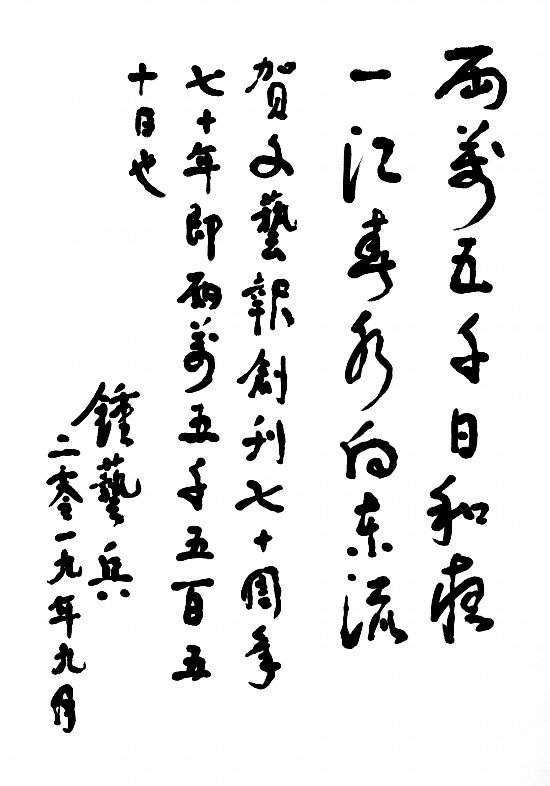 两萬五千日和夜
一江春水向东流
賀文藝報創刊七十周年
七十年即两萬五千五百五
十日也
鍾藝兵
二零一九年九月